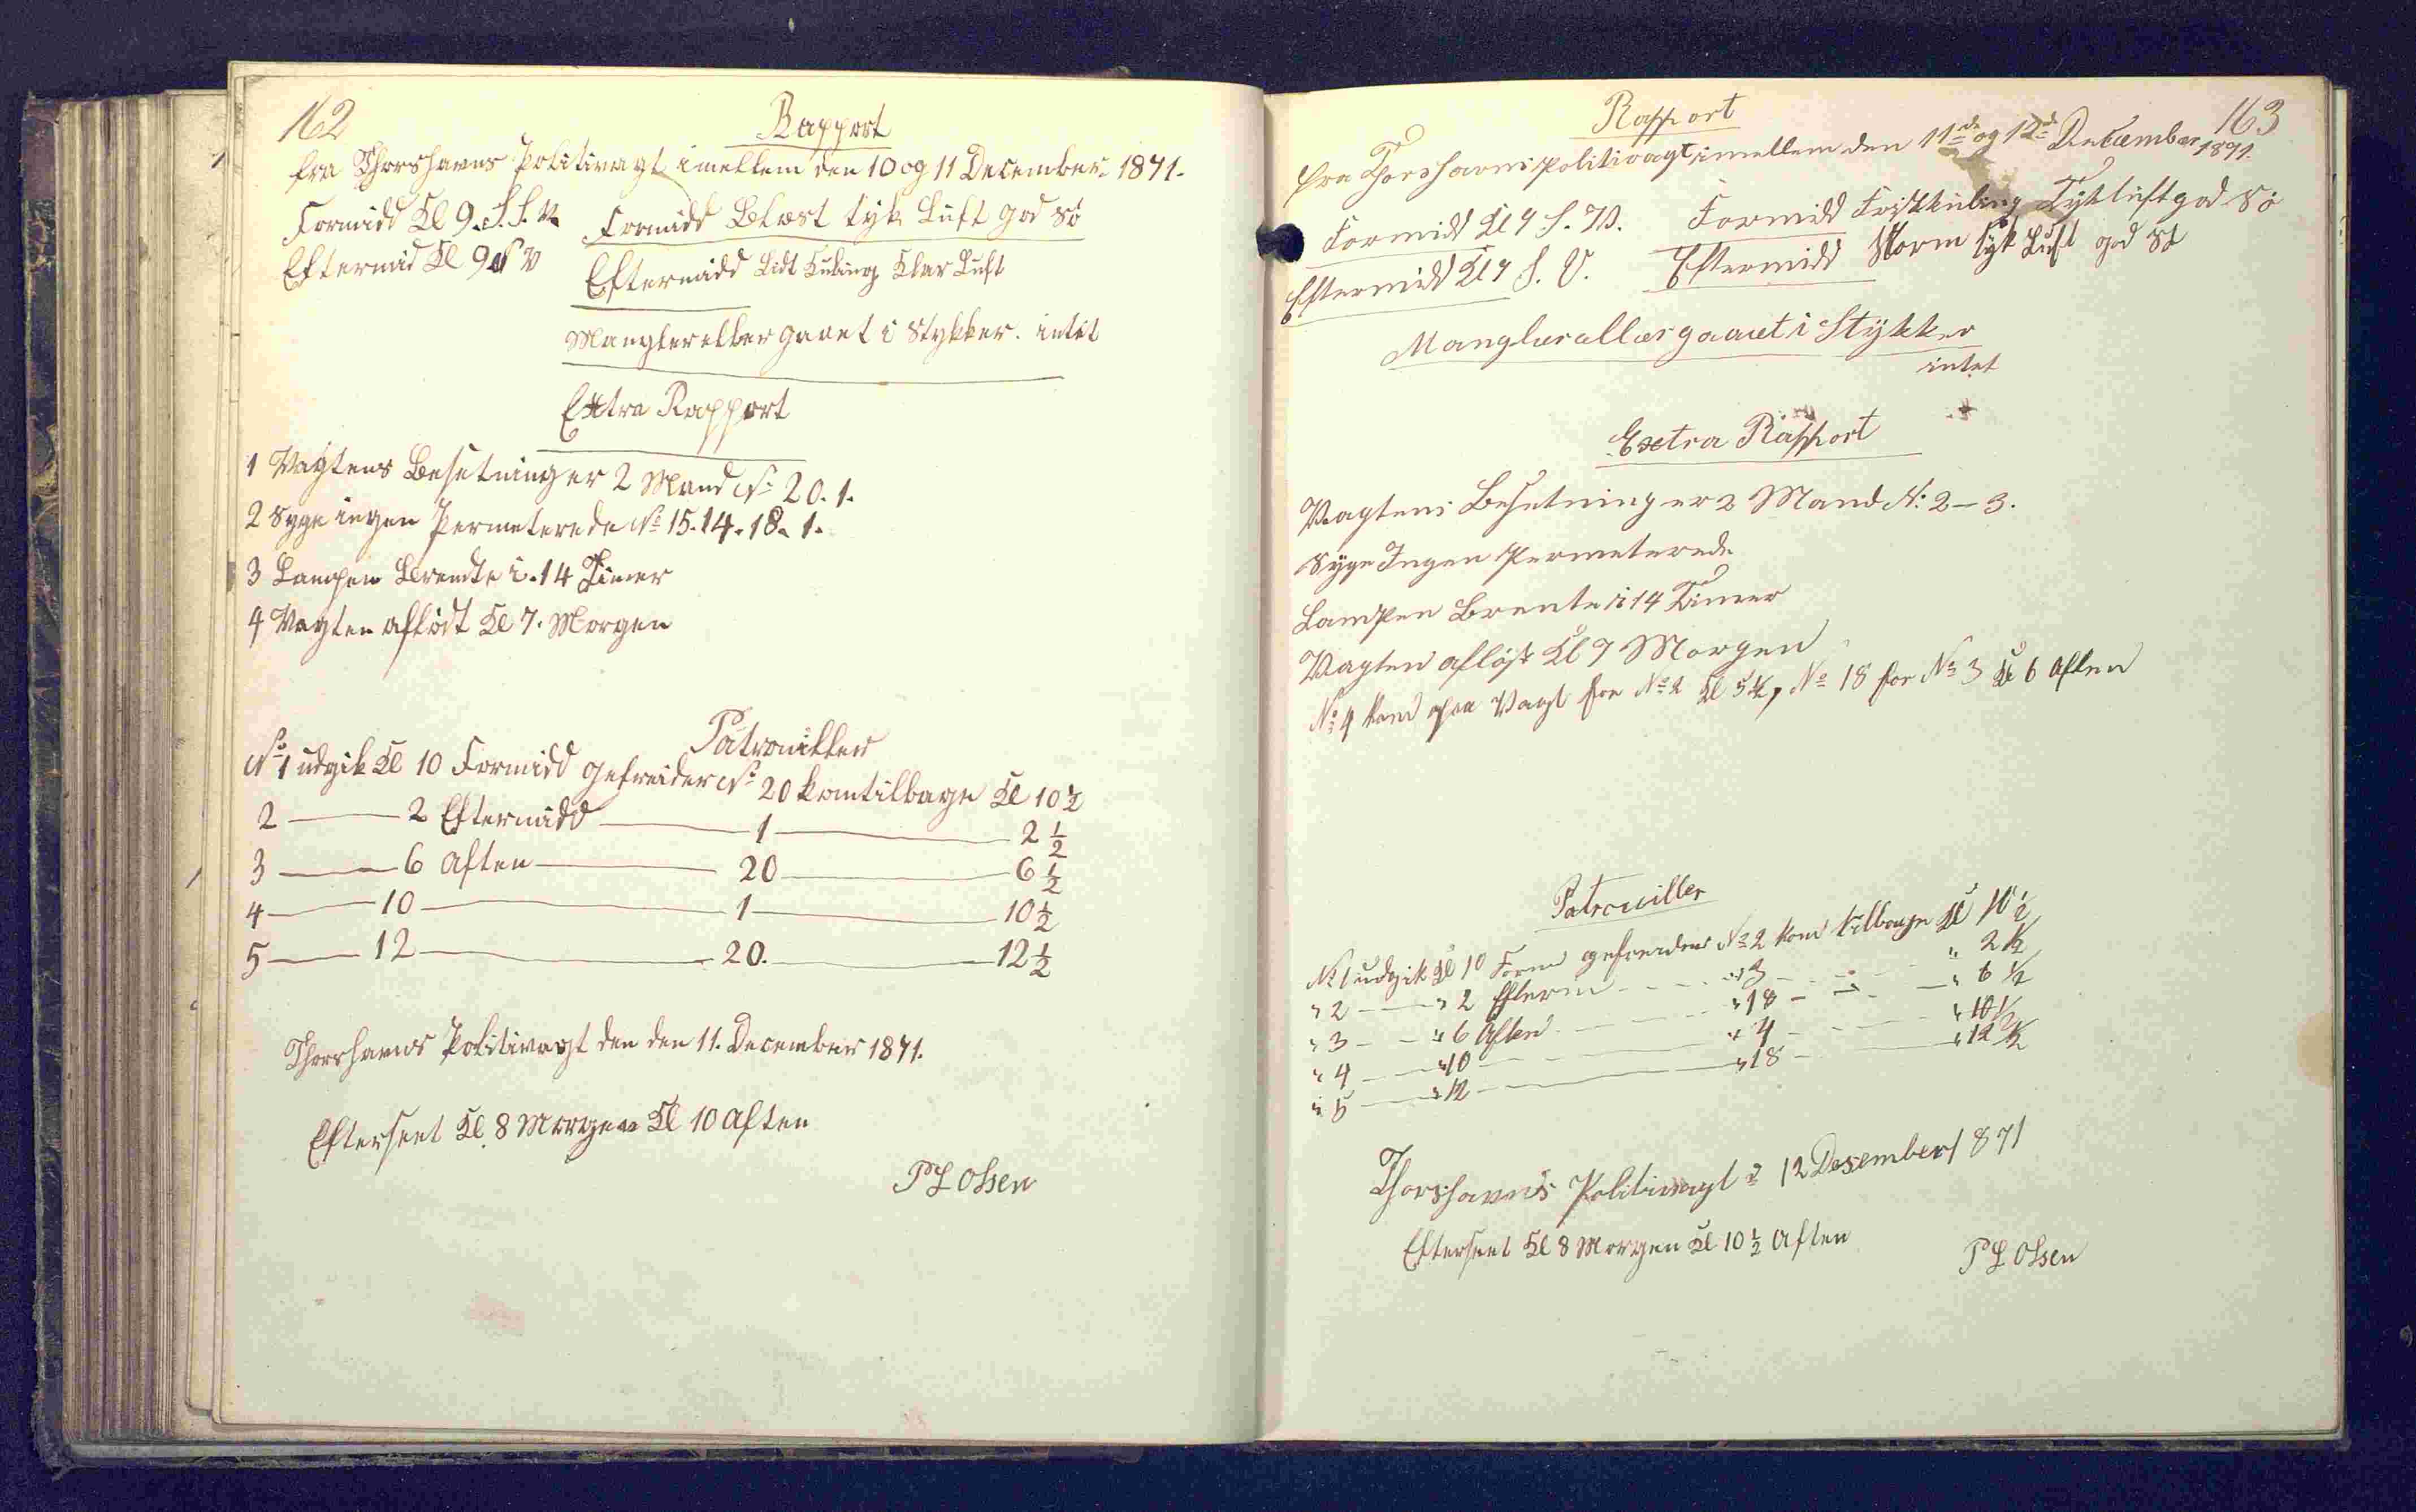 162
Rapport
fra Thorshavns Politivagt imellem den 10 og 11 December. 1871.
Formidd Kl 9. S. S. V. Formidd Blæst tyk Luft god Sö
Eftermid Kl 9 V Eftermidd Lidt Kuling Klar Luft
Mangler eller gaaet i Stykker. intet
Extra Rapport
1 Vagtens Besetning er 2 Mand No 20. 1.
2 Syge ingen Permeterede No 15. 14. 18. 1.
3 Lampen Brendte i. 14 Timer
4 Vagten aflöst Kl 7. Morgen
Patrouiller
No 1 udgik Kl 10 Formidd gefreider No 20 kom tilbage Kl 10 ½
2 — 2 Eftermidd — 1 — 2 ½
3 — 6 Aften — 20 — 6 ½
4 — 10 — 1 — 10 ½
5 — 12 — 20. — 12 ½
Thorshavns Politivagt den den 11. December 1871.
Efterseet Kl 8 Morgen Kl 10 Aften
P L Olsen
163
Rapport
fra Thorshavns Politivagt, imellem den 11de og 12de December 1871.
Formidd Kl 9 S. V. Formidd Friskkuling Tyk luft god Sö
Eftermidd Kl 9 S. V. Eftermidd Storm tyk Luft god Sö
Mangler eller gaaet i Stykker
intet
Extra Rapport
Vagtens Besetning er 2 Mand N: 2 — 3.
Syge Ingen Permeterede
Lampen Brente i 14 Timer
Vagten aflöst Kl 7 Morgen
No 4 kom paa Vagt for No 2 Kl 5½, No 18 for No 3 Kl 6 Aften
Patrouiller
No 1 udgik Kl 10 Form gefreider No 2 kom tilbage Kl 10 ½
" 2 — " 2 Efterm — " 3 — " 2 ½
" 3 — " 6 Aften — " 18 — " 6 ½
" 4 — " 10 — " 4 — " 10 ½
" 5 — " 12 — " 18 — " 12 ½
Thorshavns Politivagt d 12 Desember 1871
Efterseet Kl 8 Morgen Kl 10 ½ Aften
P L Olsen